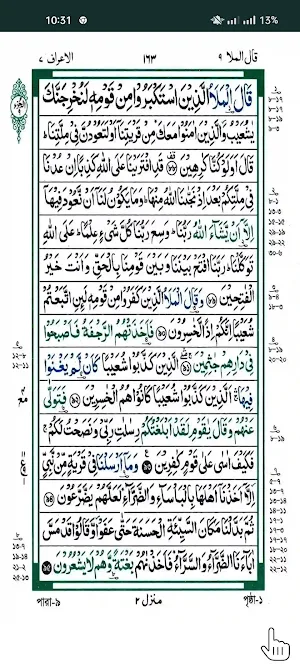 10:31
13%
الاعراف ٧
١٦٣
قال الملا ٩
قَالَ الْمَلَاُ الَّذِيْنَ اسْتَكْبَرُوْا مِنْ قَوْمِهٖ لَنُخْرِجَنَّكَ
يٰشُعَيْبُ وَالَّذِيْنَ اٰمَنُوْا مَعَكَ مِنْ قَرْيَتِنَاۤ اَوْ لَتَعُوْدُنَّ فِيْ مِلَّتِنَا
قَالَ اَوَلَوْ كُنَّا كٰرِهِيْنَ ۝٨٨ قَدِ افْتَرَيْنَا عَلَى اللّٰهِ كَذِبًا اِنْ عُدْنَا
فِيْ مِلَّتِكُمْ بَعْدَ اِذْ نَجّٰىنَا اللّٰهُ مِنْهَا وَمَا يَكُوْنُ لَنَاۤ اَنْ نَّعُوْدَ فِيْهَاۤ
اِلَّاۤ اَنْ يَّشَآءَ اللّٰهُ رَبُّنَا وَسِعَ رَبُّنَا كُلَّ شَيْءٍ عِلْمًا عَلَى اللّٰهِ
تَوَكَّلْنَا رَبَّنَا افْتَحْ بَيْنَنَا وَبَيْنَ قَوْمِنَا بِالْحَقِّ وَاَنْتَ خَيْرُ
الْفٰتِحِيْنَ ۝٨٩ وَقَالَ الْمَلَاُ الَّذِيْنَ كَفَرُوْا مِنْ قَوْمِهٖ لَىِٕنِ اتَّبَعْتُمْ
شُعَيْبًا اِنَّكُمْ اِذًا لَّخٰسِرُوْنَ ۝٩٠ فَاَخَذَتْهُمُ الرَّجْفَةُ فَاَصْبَحُوْا
فِيْ دَارِهِمْ جٰثِمِيْنَ ۝٩١ الَّذِيْنَ كَذَّبُوْا شُعَيْبًا كَاَنْ لَّمْ يَغْنَوْا
فِيْهَا اَلَّذِيْنَ كَذَّبُوْا شُعَيْبًا كَانُوْا هُمُ الْخٰسِرِيْنَ ۝٩٢ فَتَوَلّٰى
عَنْهُمْ وَقَالَ يٰقَوْمِ لَقَدْ اَبْلَغْتُكُمْ رِسٰلٰتِ رَبِّيْ وَنَصَحْتُ لَكُمْ
فَكَيْفَ اٰسٰى عَلٰى قَوْمٍ كٰفِرِيْنَ ۝٩٣ وَمَاۤ اَرْسَلْنَا فِيْ قَرْيَةٍ مِّنْ نَّبِيٍّ
اِلَّاۤ اَخَذْنَاۤ اَهْلَهَا بِالْبَاْسَآءِ وَالضَّرَّآءِ لَعَلَّهُمْ يَضَّرَّعُوْنَ ۝٩٤
ثُمَّ بَدَّلْنَا مَكَانَ السَّيِّئَةِ الْحَسَنَةَ حَتّٰى عَفَوْا وَّقَالُوْا قَدْ مَسَّ
اٰبَآءَنَا الضَّرَّآءُ وَالسَّرَّآءُ فَاَخَذْنٰهُمْ بَغْتَةً وَّهُمْ لَا يَشْعُرُوْنَ ۝٩٥
পারা-৯
منزل ٢
পৃষ্ঠা-১